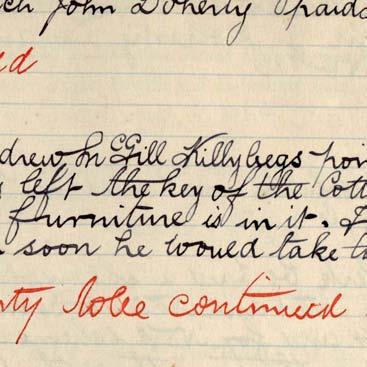 John Doherty paid
drew McGill Killybegs poin
left the key of the Cott
furniture is in it. I
soon he would take t
rty to be continued